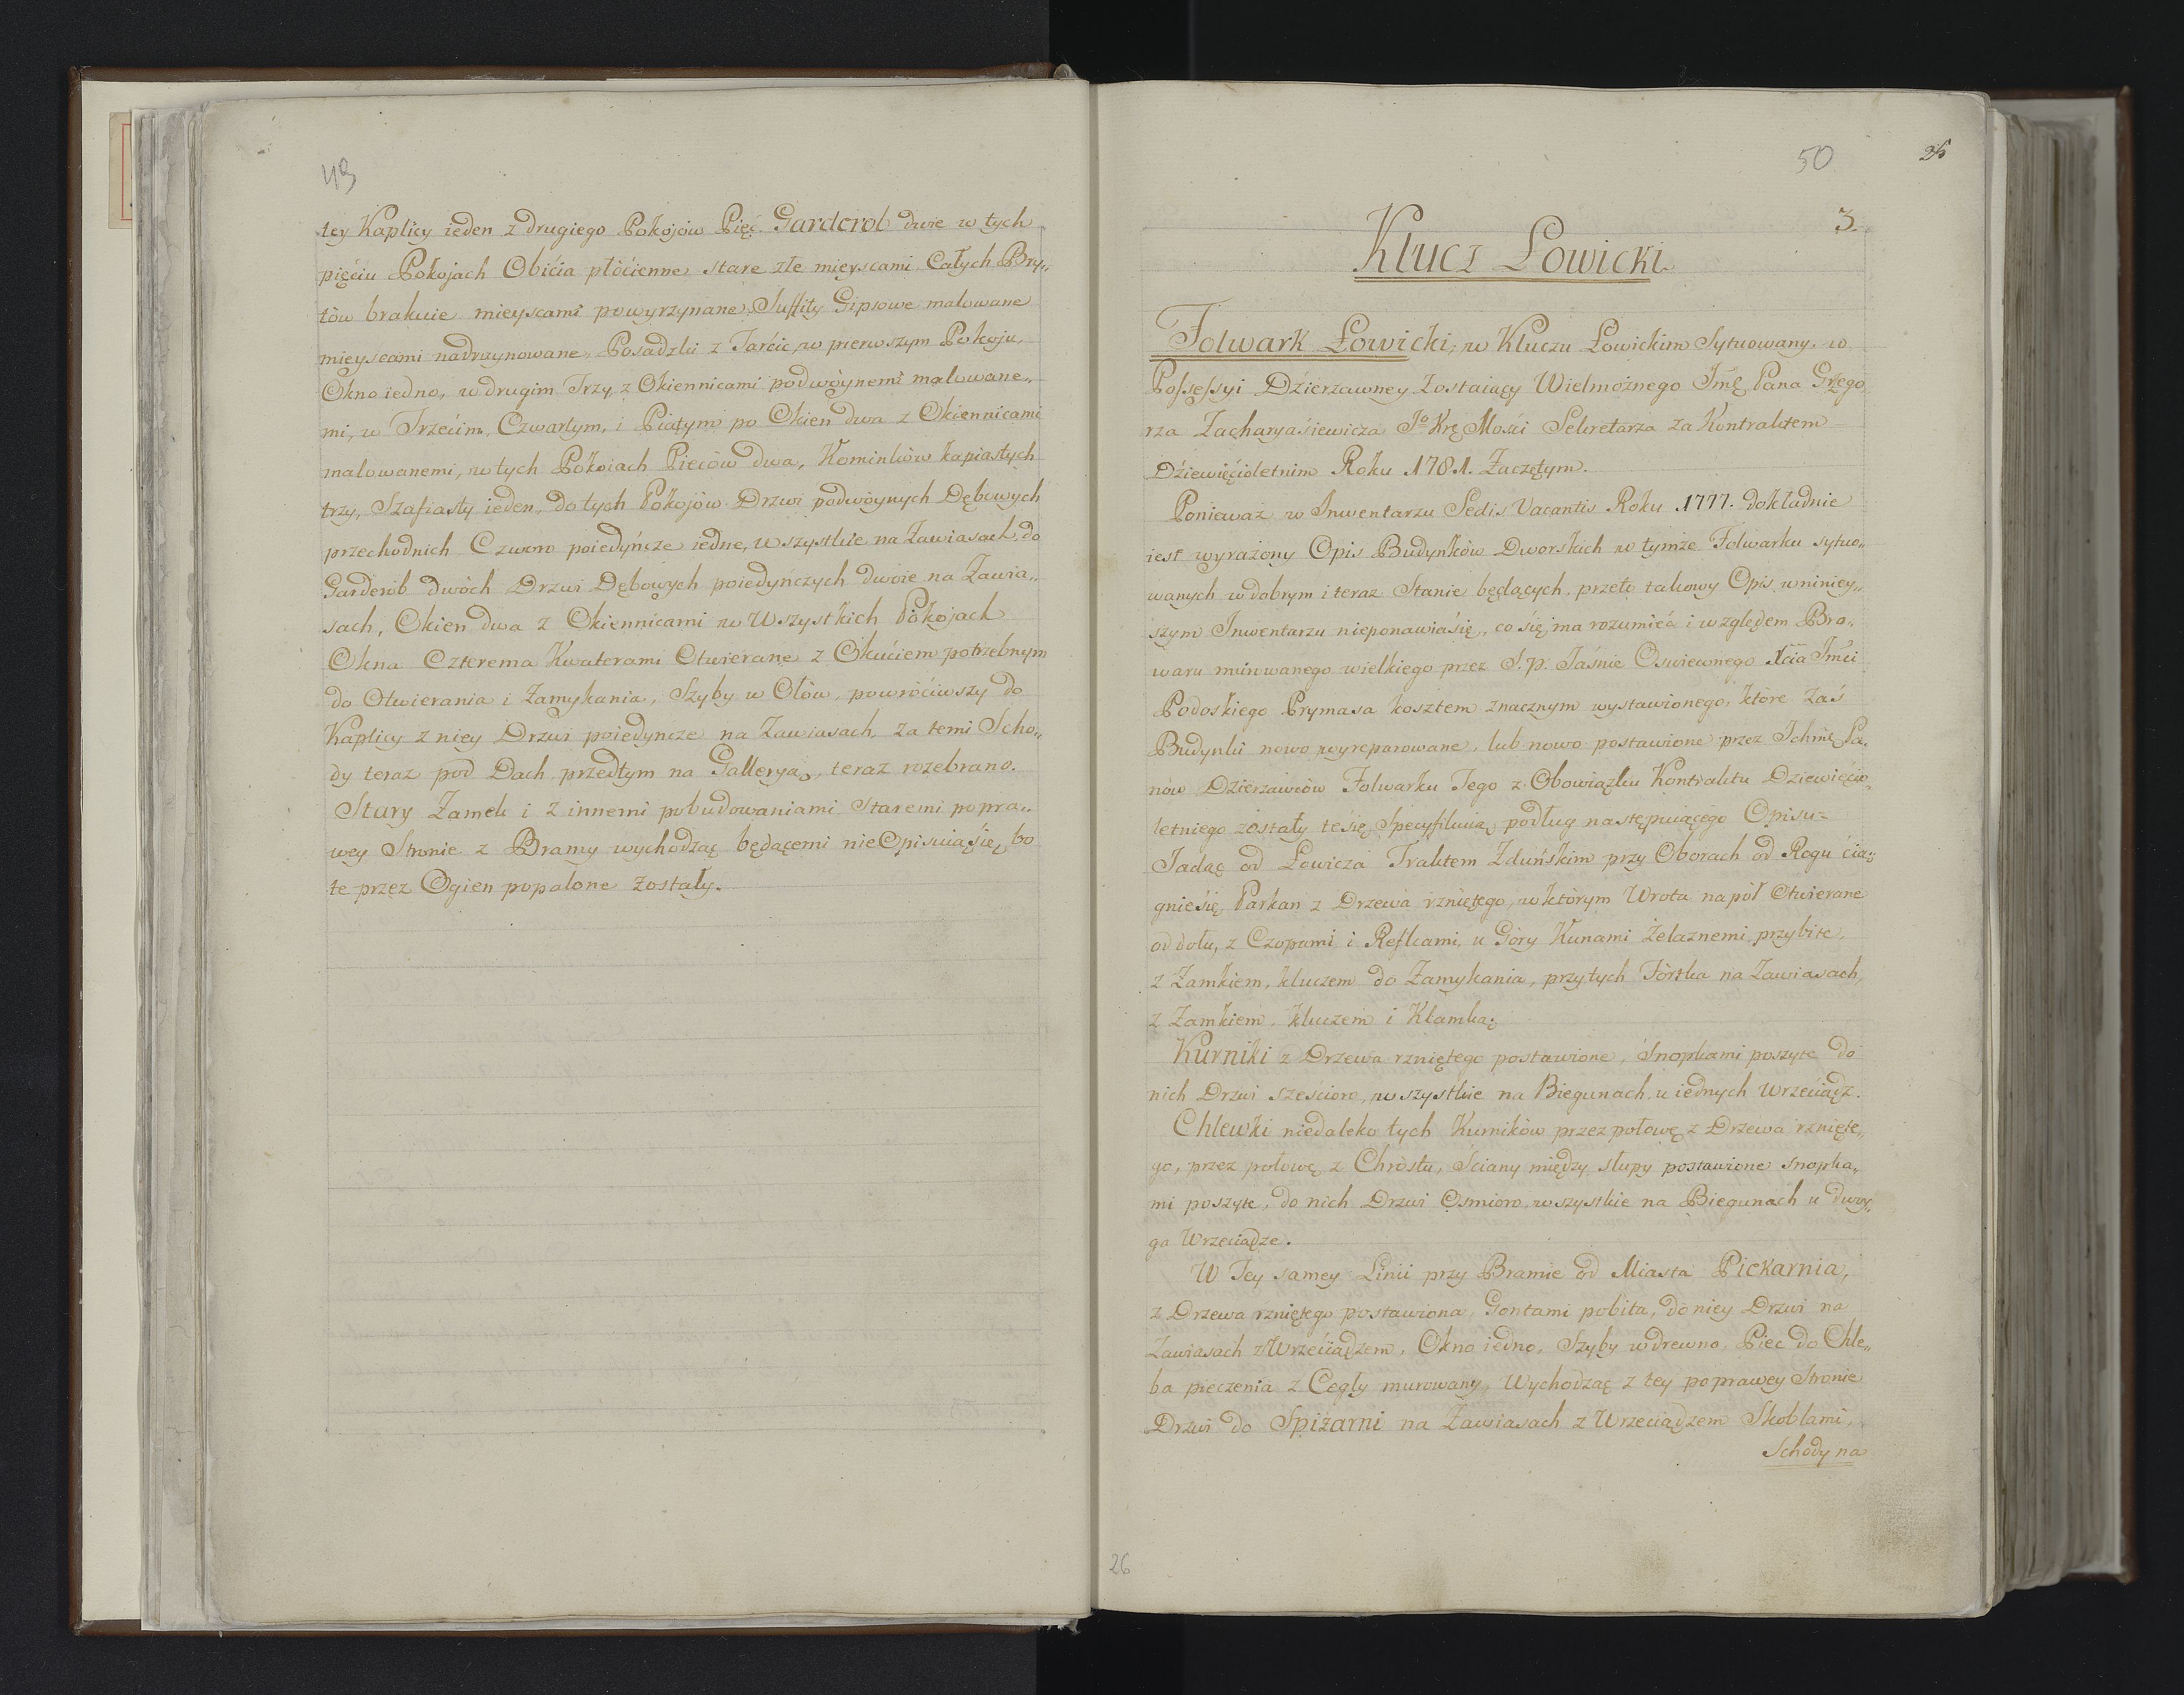 49
tey Kaplicy ieden z drugiego Pokojów Pięć. Garderob dwie w tych
pięciu Pokojach Obićia płócienne stare złe mieyscami Całych Bry„
tów brakuie mieyscami powyrzynane, Suffity Gipsowe malowane
mieyscami nadruynowane, Posadzki z Tarćic, w pierwszym Pokoju,
Okno iedno, w drugim Trzy, z Okiennicami podwóynemi malowane„
mi, w Trzećim, Czwartym, i Piątym po Okien dwa z Okiennicami
malowanemi, w tych Pokoiach Pieców dwa, Kominków kapiastych
trzy, Szafiasty ieden, do tych Pokojów Drzwi podwóynych Dębowych
przechodnich Czworo poiedyńcze iedne, wszystkie na Zawiasach, do
Garderób dwóch Drzwi Dębowych poiedyńczych dwoie na Zawia„
sach, Okien dwa z Okiennicami w Wszystkich Pokojach
Okna Czterema Kwaterami Otwierane z Okućiem potrzebnym
do Otwierania i Zamykania, Szyby w Ołów, powróciwszy do
Kaplicy z niey Drzwi poiedyncze na Zawiasach, za temi Scho„
dy teraz pod Dach przedtym na Galleryą, teraz rozebrano.
Stary Zamek i z innemi pobudowaniami Staremi po pra„
wey Stronie z Bramy wychodząc będącemi nie Opisuią się, bo
te przez Ogien popalone zostały.
50
3.
Klucz Łowicki
Folwark Łowicki, w Kluczu Łowickim Sytuowany, w
Possessyi Dźierzawney zostaiący Wielmożnego Jmć Pana Grzego
rza Zacharyaśiewicza Jo Krę Mośći Sekretarza za Kontraktem
Dźiewięćioletnim Roku 1781. Zaczętym.
Ponieważ w Inwentarzu Sedis Vacantis Roku 1777. dokładnie
iest wyrażony Opis Budynków Dworskich w tymże Folwarku sytuo„
wanych w dobrym i teraz Stanie będących, przeto takowy Opis w niniey„
szym Inwentarzu nieponawia się, co się ma rozumieć i względem Bro„
waru murowanego wielkiego przez S. p. Jaśnie Oswieconego Xcia Jmci
Podoskiego Prymasa kosztem znacznym wystawionego, które zaś
Budynki nowo wyreparowane, lub nowo postawione przez Ichmć Pa„
nów Dzierzawców Folwarku Tego z Obowiązku Kontraktu Dziewięcio„
letniego zostały te się Specyfikuią podług następuiącego Opisu=
Jadąc od Łowicza Traktem Zduńskim przy Oborach od Rogu ćią„
gnie się Parkan z Drzewa rzniętego, w którym Wrota na pół Otwierane
od dołu, z Czopami i Refkami, u Góry Kunami żelaznemi przybite,
z Zamkiem, kluczem do Zamykania, przy tych Fórtka na Zawiasach,
z Zamkiem, kluczem i Klamką;
Kurniki z Drzewa rzniętego postawione, Snopkami poszyte do
nich Drzwi sześcioro, wszystkie na Biegunach, u iednych wrzeciądz.
Chlewki niedaleko tych Kurników przez połowę z Drzewa rznięte„
go, przez połowę z Chróstu, Sciany między słupy postawione Snopka„
mi poszyte, do nich Drzwi Osmioro, wszystkie na Biegunach u dwoy„
ga Wrzeciądze.
W Tey samey Linii przy Bramie od Miasta Piekarnia,
z Drzewa rzniętego postawiona, Gontami pobita, do niey Drzwi na
Zawiasach z Wrzeciądzem, Okno iedno, Szyby w drewno, Piec do Chle„
ba pieczenia z Cegły murowany, Wychodząc z tey po prawey Stronie
Drzwi do Spiżarni na Zawiasach z Wrzeciądzem Skoblami,
Schody na
26